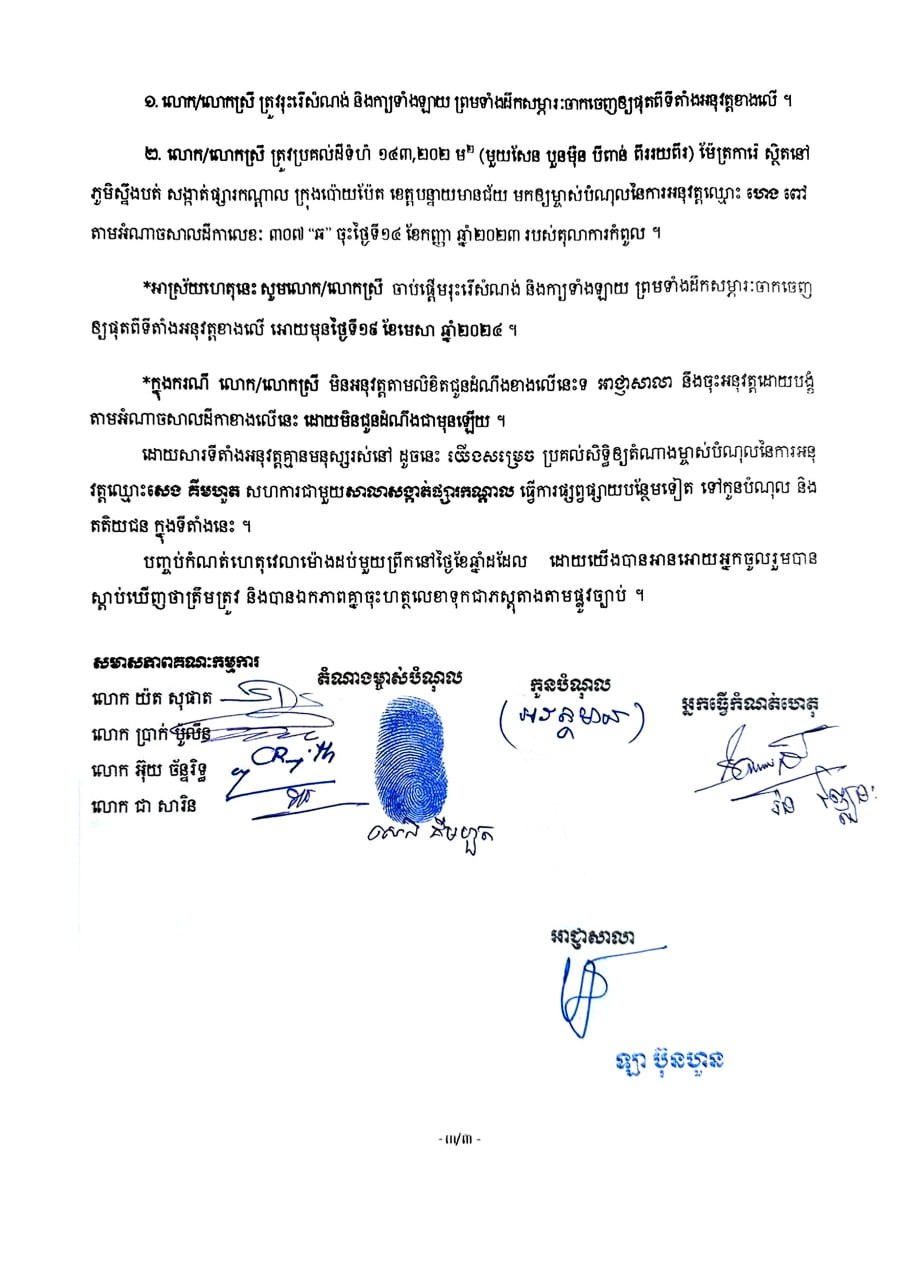 ១. លោក/លោកស្រី ត្រូវរុះរើសំណង់ និងកាឬទាំងឡាយ ព្រមទាំងដឹកសម្ភារៈចាកចេញឲ្យផុតពីទីតាំងអនុវត្តខាងលើ ។
២. លោក/លោកស្រី ត្រូវប្រគល់ដីទំហំ ១៤៣,២០២ ម² (មួយសែន បួនម៉ឺន បីពាន់ ពីររយពីរ) ម៉ែត្រការ៉េ ស្ថិតនៅ
ភូមិស្នឹងបត់ សង្កាត់ផ្សារកណ្តាល ក្រុងប៉ោយប៉ែត ខេត្តបន្ទាយមានជ័យ មកឲ្យម្ចាស់បំណុលនៃការអនុវត្តឈ្មោះ ហេង ពៅ
តាមអំណាចសាលដីកាលេខៈ ៣០៧ “ឆ” ចុះថ្ងៃទី១៤ ខែកញ្ញា ឆ្នាំ២០២៣ របស់តុលាការកំពូល ។
*អាស្រ័យហេតុនេះ សូមលោក/លោកស្រី ចាប់ផ្តើមរុះរើសំណង់ និងកាឬទាំងឡាយ ព្រមទាំងដឹកសម្ភារៈចាកចេញ
ឲ្យផុតពីទីតាំងអនុវត្តខាងលើ អោយមុនថ្ងៃទី១៩ ខែមេសា ឆ្នាំ២០២៤ ។
*ក្នុងករណី លោក/លោកស្រី មិនអនុវត្តតាមលិខិតជូនដំណឹងខាងលើនេះទេ អាជ្ញាសាលា នឹងចុះអនុវត្តដោយបង្ខំ
តាមអំណាចសាលដីកាខាងលើនេះ ដោយមិនជូនដំណឹងជាមុនឡើយ ។
ដោយសារទីតាំងអនុវត្តគ្មានមនុស្សរស់នៅ ដូចនេះ យើងសម្រេច ប្រគល់សិទ្ធិឲ្យតំណាងម្ចាស់បំណុលនៃការអនុ
វត្តឈ្មោះសេង គឹមហួត សហការជាមួយសាលាសង្កាត់ផ្សារកណ្តាល ធ្វើការផ្សព្វផ្សាយបន្ថែមទៀត ទៅកូនបំណុល និង
តតិយជន ក្នុងទីតាំងនេះ ។
បញ្ចប់កំណត់ហេតុវេលាម៉ោងដប់មួយព្រឹកនៅថ្ងៃខែឆ្នាំដដែល ដោយយើងបានអានអោយអ្នកចូលរួមបាន
ស្តាប់ឃើញថាត្រឹមត្រូវ និងបានឯកភាពគ្នាចុះហត្ថលេខាទុកជាភស្តុតាងតាមផ្លូវច្បាប់ ។
សមាសភាពគណៈកម្មការ
តំណាងម្ចាស់បំណុល
កូនបំណុល
អ្នកធ្វើកំណត់ហេតុ
លោក យ៉ត សុផាត
(អវត្តមាន)
លោក ប្រាក់ ប៊ូលីន
លោក អ៊ុយ ច័ន្ទរិទ្ធ
លោក ជា សារិន
សេង គឹមហួត
អាជ្ញាសាលា
ឡា ប៊ុនហួន
- ៣/៣ -